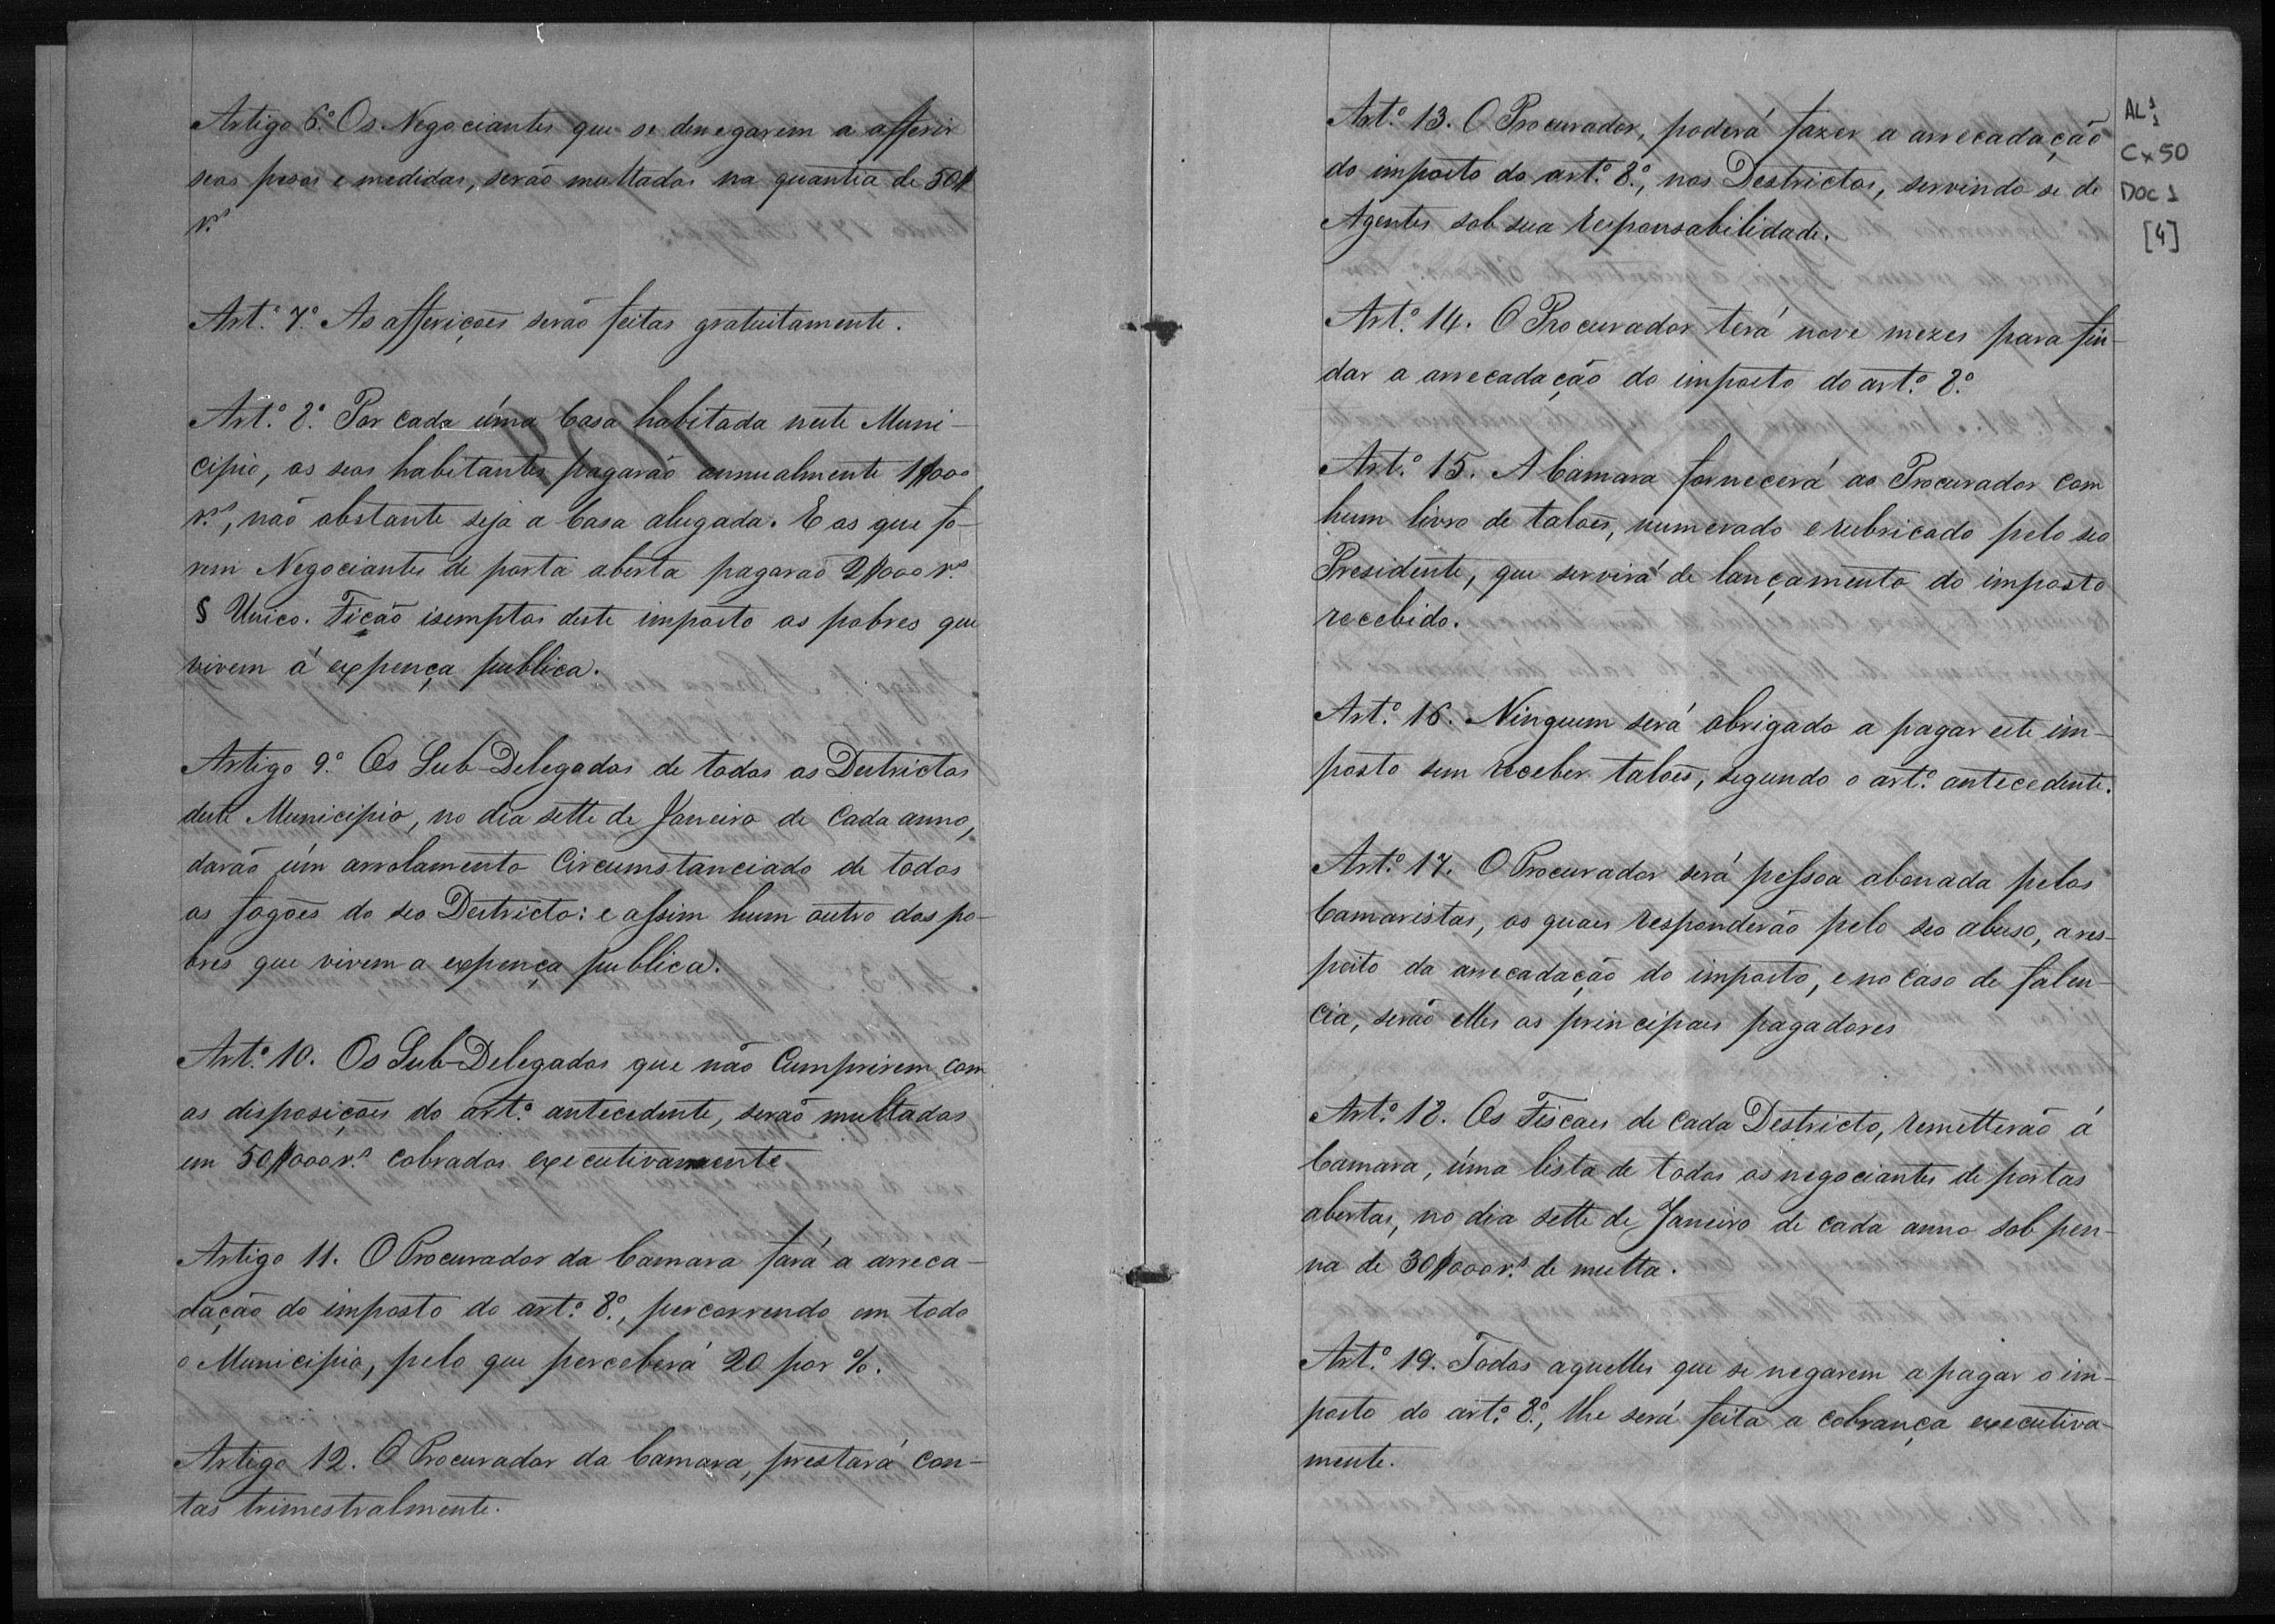 Artigo 6.º Os Negociantes que se denegarem a afferir
seos pesos e medidas, serão multados na quantia de 50$
r.s
Art.º 7.º As afferiçoẽs serão feitas gratuitamente.
Art.º 8.º Por cada úma Casa habitada neste Muni-
cipio, os seos habitantes pagarão annualmente 1$000
r.s, não obstante seja a Casa alugada. E os que fo-
rem Negociantes de porta aberta pagarão 2$000 r.s
§ Unico. Ficão isemptos deste imposto os pobres que
vivem á expença publica.
Artigo 9.º Os Sub-Delegados de todos os Destrictos
deste Municipio, no dia sette de Janeiro de Cada anno,
darão úm arrolamento Circumstanciado de todos
os fogoẽs do seo Destricto: e assim hum outro dos po-
bres que vivem a expença publica.
Art.º 10. Os Sub-Delegados que não Cumprirem com
as disposiçoẽs do art.º antecedente, serão multados
em 50$000 r.s cobrados executivamente
Artigo 11. O Procurador da Camara fará a arreca-
dação do imposto do art.º 8.º, percorrendo em todo
o Municipio, pelo que perceberá 20 por %.
Artigo 12. O Procurador da Camara, prestará con-
tas trimestralmente.
AL.1
1
Cx 50
DOC 1
[4]
Art.º 13. O Procurador, poderá fazer a arrecadação
do imposto do art.º 8.º, nos Destrictos, servindo se de
Agentes sob sua responsabilidade.
Art.º 14. O Procurador terá nove mezes para fin-
dar a arrecadação do imposto do art.º 8.º
Art.º 15. A Câmara fornecerá ao Procurador com
hum livro de taloẽs, numerado e rubricado pelo seo
Presidente, que servirá de lançamento do imposto
recebido.
Art.º 16. Ninguem será obrigado a pagar este im-
posto sem receber taloẽs, segundo o art.º antecedente.
Art.º 17. O Procurador será pessoa abonada pelos
Camaristas, os quaes responderão pelo seo abuso, a res-
peito da arrecadação do imposto, e no caso de falen-
cia, serão elles os principaes pagadores
Art.º 18. Os Fiscaes de Cada Destricto, remetterão á
Camara, úma lista de todos os negociantes de portas
abertas, no dia sette de Janeiro de cada anno sob pen-
na de 30$000 r.s de multa.
Art.º 19. Todos aquelles que se negarem a pagar o im-
posto do art.º 8.º, lhe será feita a cobrança executiva-
mente.